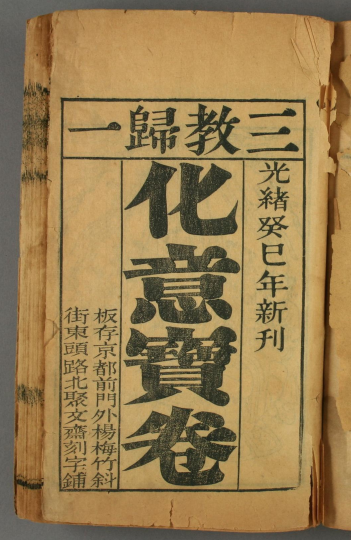 三教歸一
光緒癸巳年新刊
化意寶卷
板存京都前門外楊梅竹斜
街東頭路北聚文齋刻字鋪